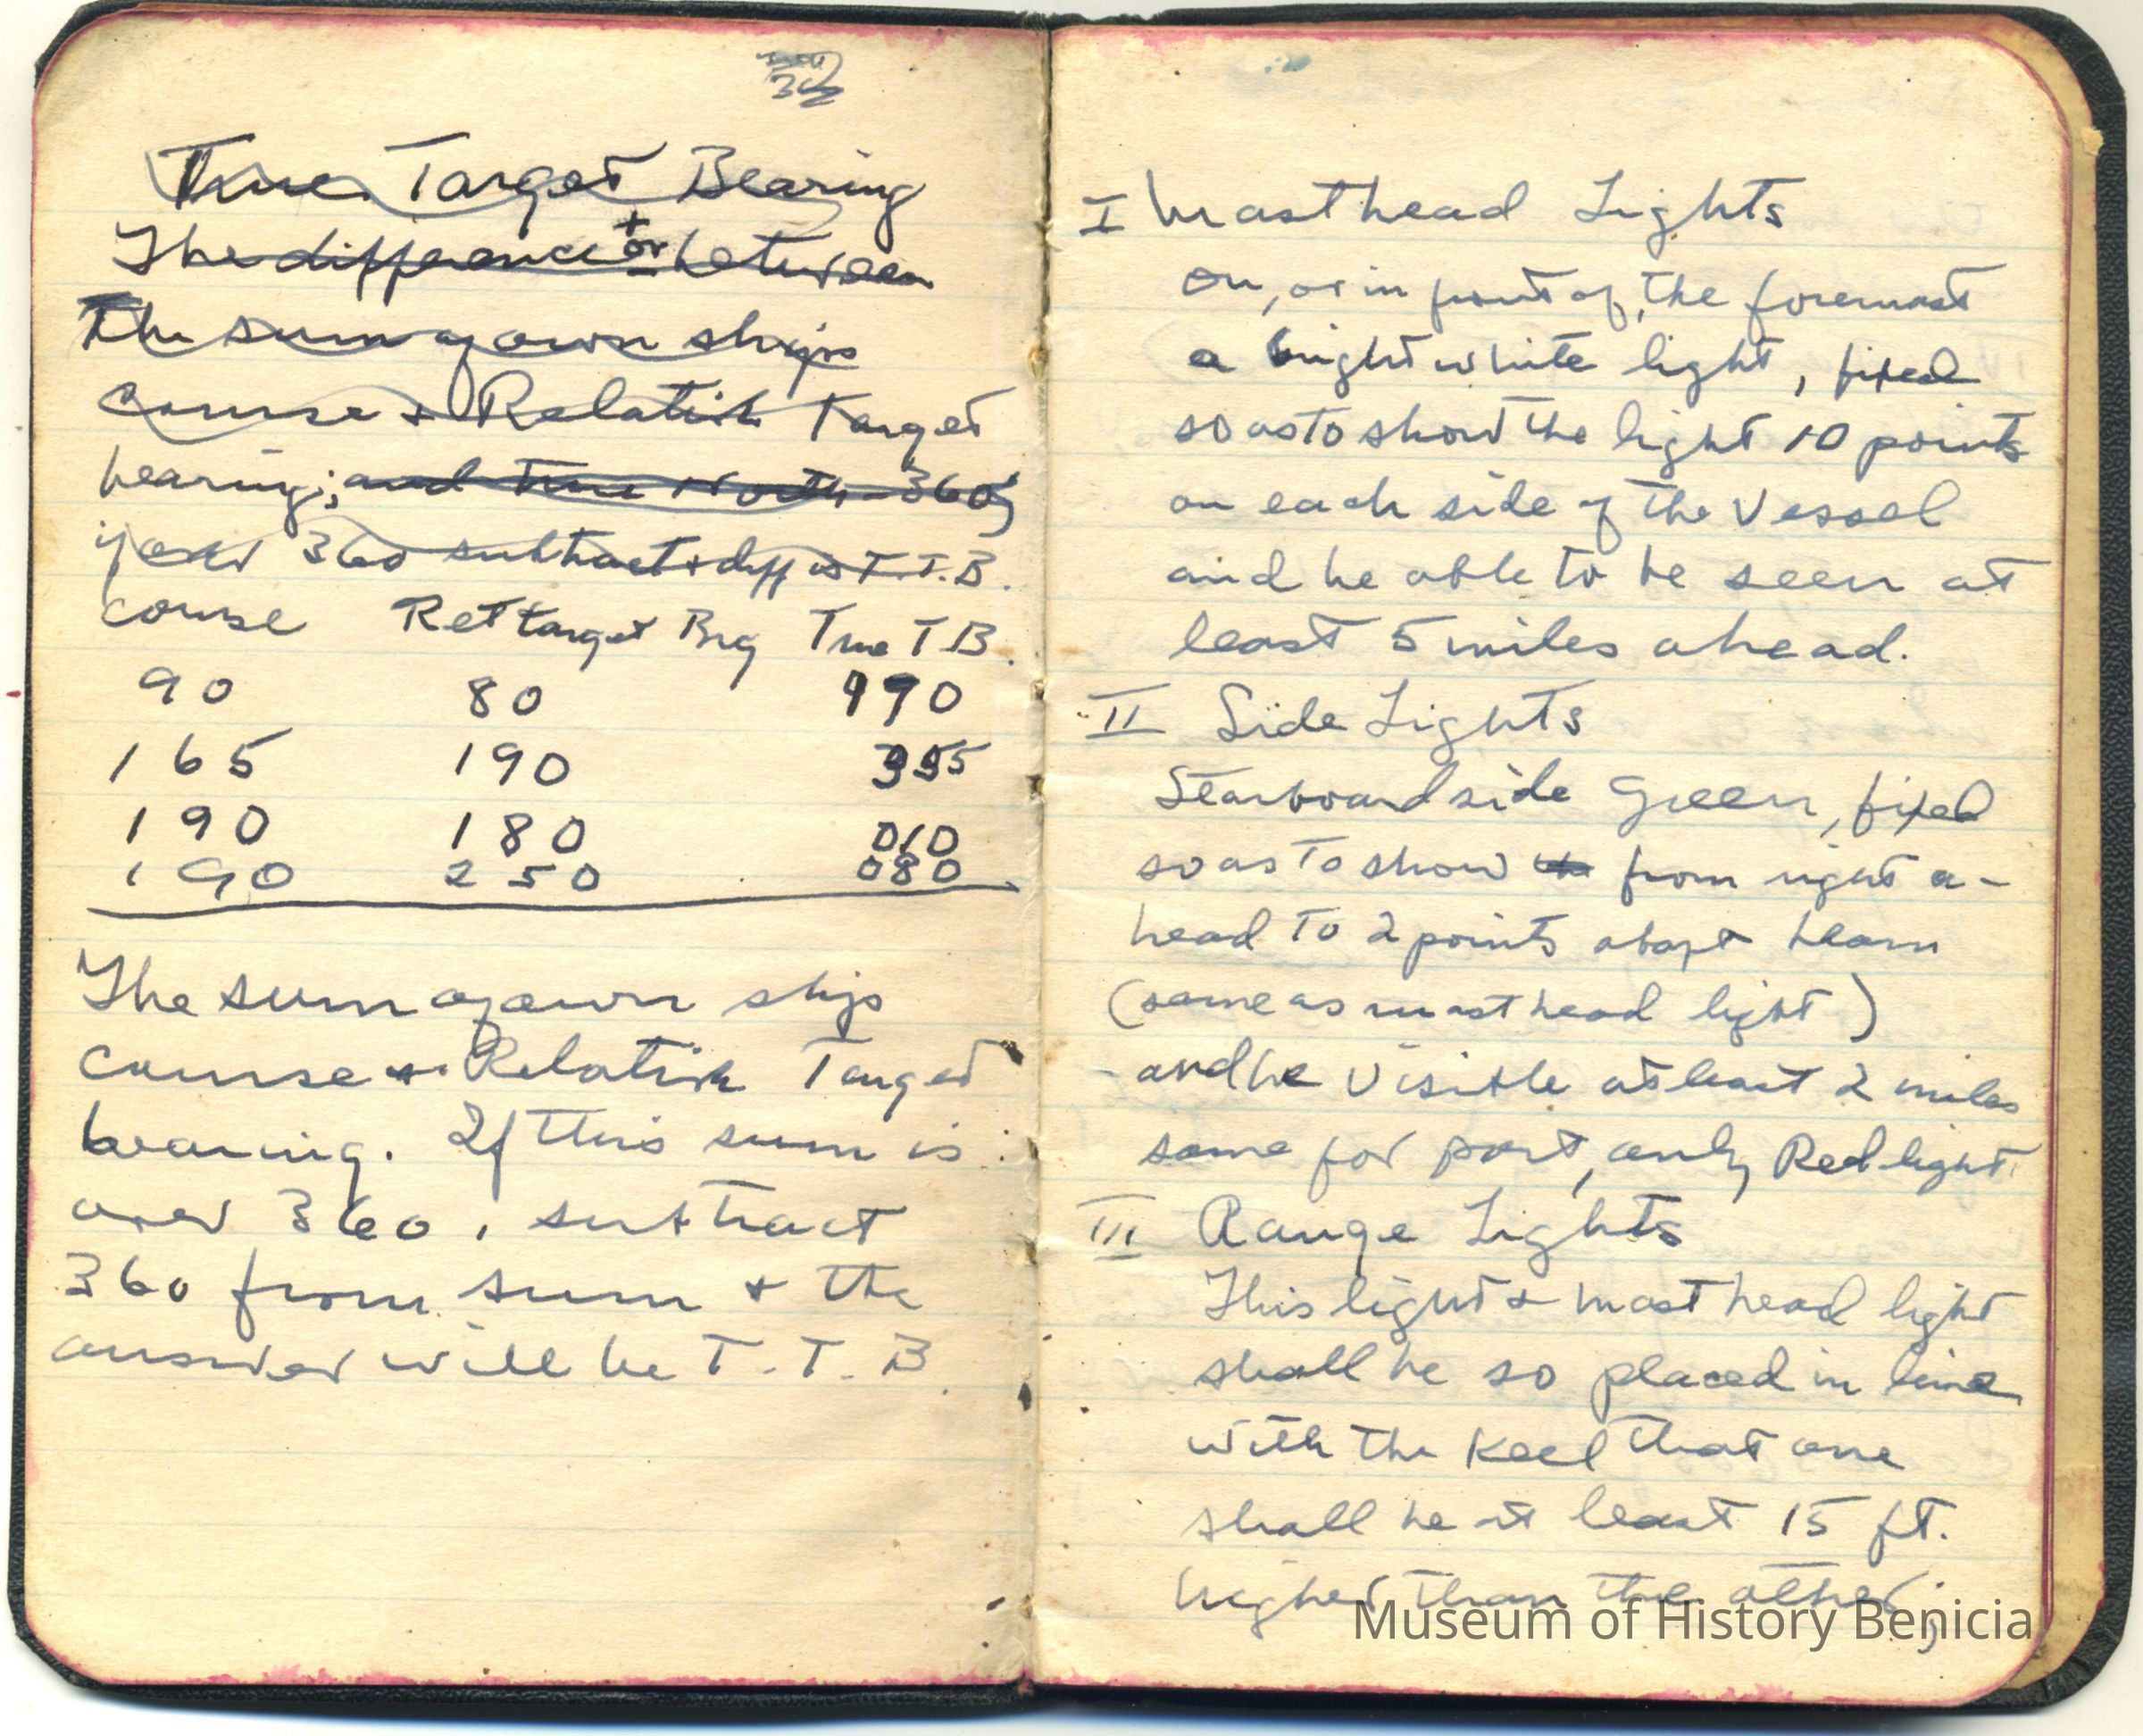 True Target Bearing
The difference + or - between
the sum of own ships
course + Relative Target
bearing; and true North - 360;
if over 360 subtract + diff is T.T.B.
course Rel target Brg True T B.
90 80 170
165 190 355
190 180 010
190 250 080
The sum of own ships
course + Relative Target
bearing. If this sum is
over 360, subtract
360 from sum + the
answer will be T.T.B.
I Masthead Lights
on, or in front of, the foremast
a bright white light, fixed
so as to show the light 10 points
on each side of the Vessel
and be able to be seen at
least 5 miles ahead.
II Side Lights
Starboard side Green, fixed
so as to show from right a-
head to 2 points abaft beam
(same as masthead light)
and be visible at least 2 miles
same for port, only Red light.
III Range Lights
This light + masthead light
shall be so placed in line
with the Keel that one
shall be at least 15 ft.
higher than the other;
Museum of History Benicia